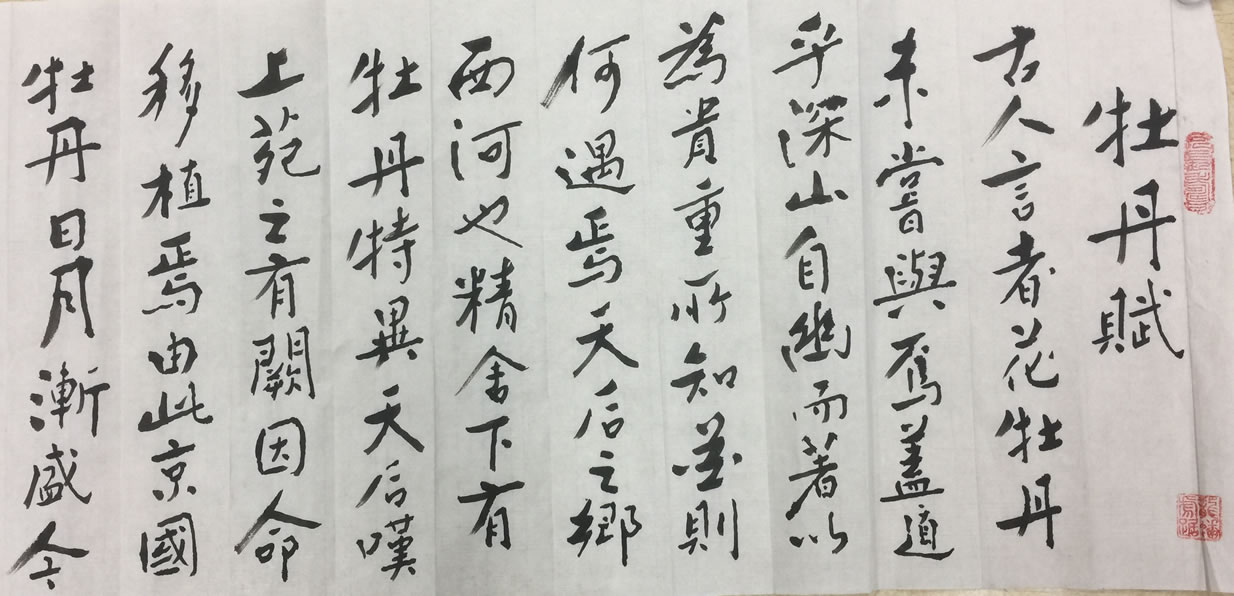 牡丹賦
古人言者花牡丹
未嘗與焉蓋遁
乎深山自幽而著以
為貴重所知則
何遇焉天后之鄉
西河也精舍下有
牡丹特異天后嘆
上苑之有闕因命
移植焉由此京國
牡丹日月漸盛今